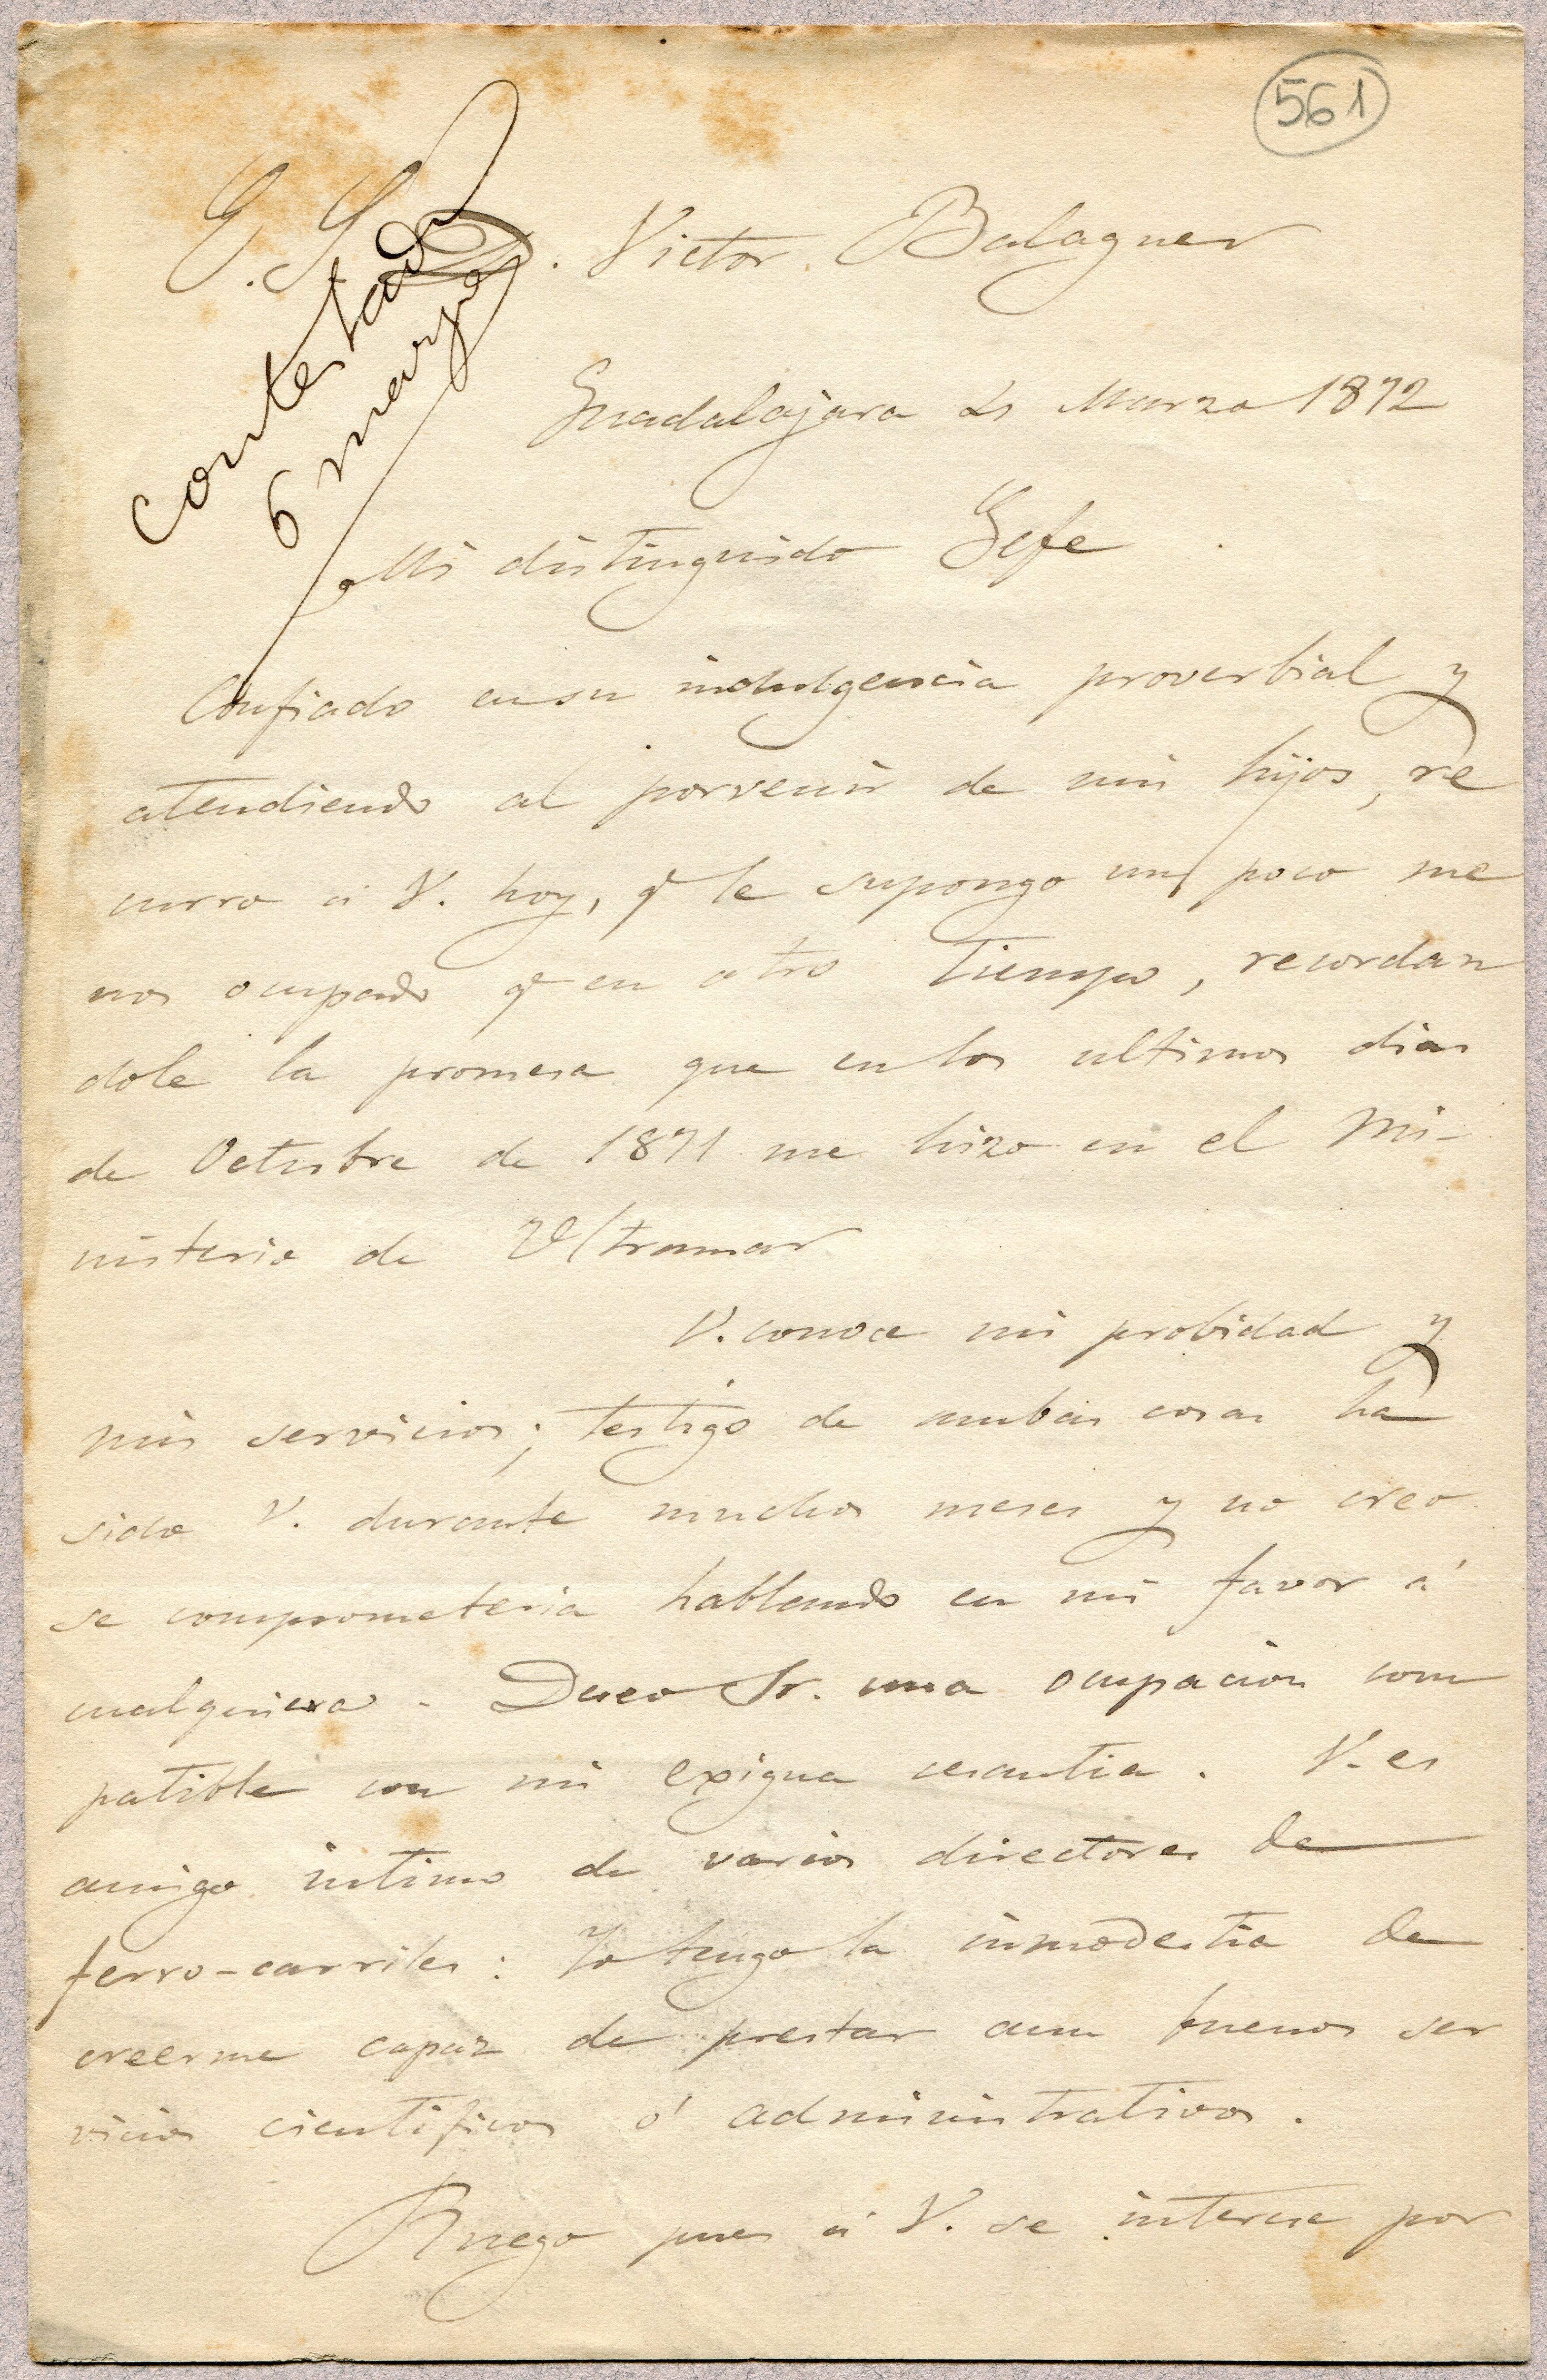 561
E. S. D. Victor Balaguer
contestada
6 marzo
Guadalajara 21 Marzo 1872
Mi distinguido Gefe
Confiado en su indulgencia proverbial y
atendiendo al porvenir de mis hijos, re
curro á V. hoy, q.e le supongo un poco me
nos ocupado q.e en otro tiempo, recordan
dole la promesa que en los ultimos dias
de Octubre de 1871 me hizo en el Mi-
nisterio de Ultramar
V. conoce mi probidad y
mis servicios; testigo de ambas cosas ha
sido V. durante muchos meses y no creo
se comprometeria hablando en mi favor á
cualquiera. Deseo Sr. una ocupacion com
patible con mi exigua cesantia. V. es
amigo intimo de varios directores de
ferro-carriles: Yo tengo la inmodestia de
creerme capaz de prestar aun buenos ser
vicios cientificos ó administrativos.
Ruego pues á V. se interese por